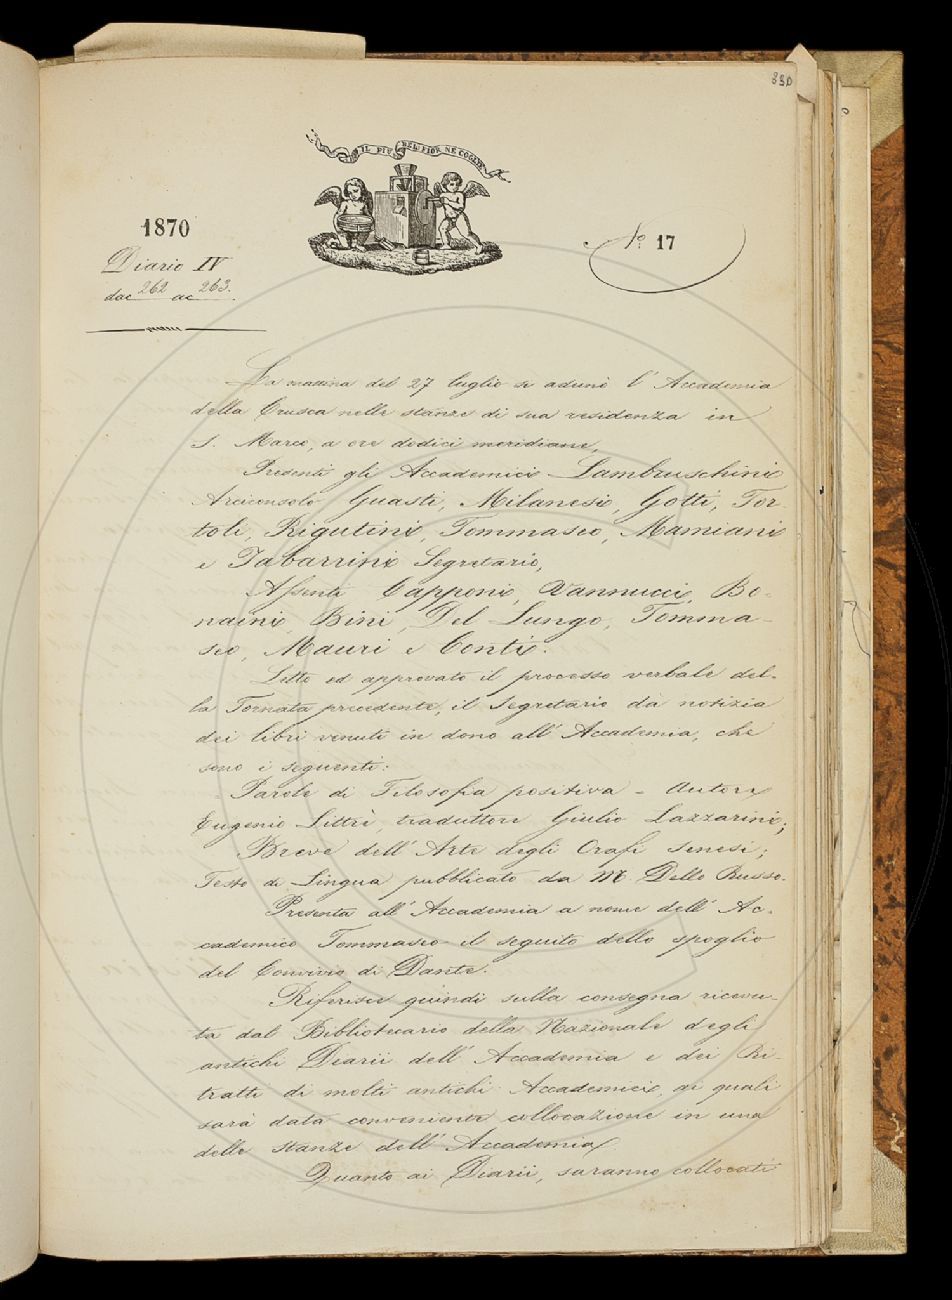 330
IL PIÙ BEL FIOR NE COGLIE
1870
Nº 17
Diario IV
da c 262 a c 263.
La mattina del 27 luglio si adunò l'Accademia
della Crusca nelle stanze di sua residenza in
S. Marco, a ore dodici meridiane,
Presenti gli Accademici - Lambruschini
Arciconsolo Guasti, Milanesi, Gotti, Tor-
toli, Rigutini, Tommaseo, Mamiani
e Tabarrini Segretario,
Assenti Capponi, Vannucci, Bo-
naini, Bini, Del Lungo, Tomma-
seo, Mauri e Conti.
Letto ed approvato il processo verbale del-
la Tornata precedente, il Segretario dà notizia
dei libri venuti in dono all'Accademia, che
sono i seguenti:
Parole di Filosofia positiva - Autore
Eugenio Littrè, traduttore Giulio Lazzarini;
Breve dell'Arte degli Orafi Senesi;
Testo di Lingua pubblicato da M. Dello Russo.
Presenta all'Accademia a nome dell'Ac-
cademico Tommaseo il seguito dello spoglio
del Convivio di Dante.
Riferisce quindi sulla consegna ricevu-
ta dal Bibliotecario della Nazionale degli
antichi Diarii dell'Accademia e dei Ri-
tratti di molti antichi Accademici, ai quali
sarà data conveniente collocazione in una
delle stanze dell'Accademia.
Quanto ai Diarii, saranno collocati